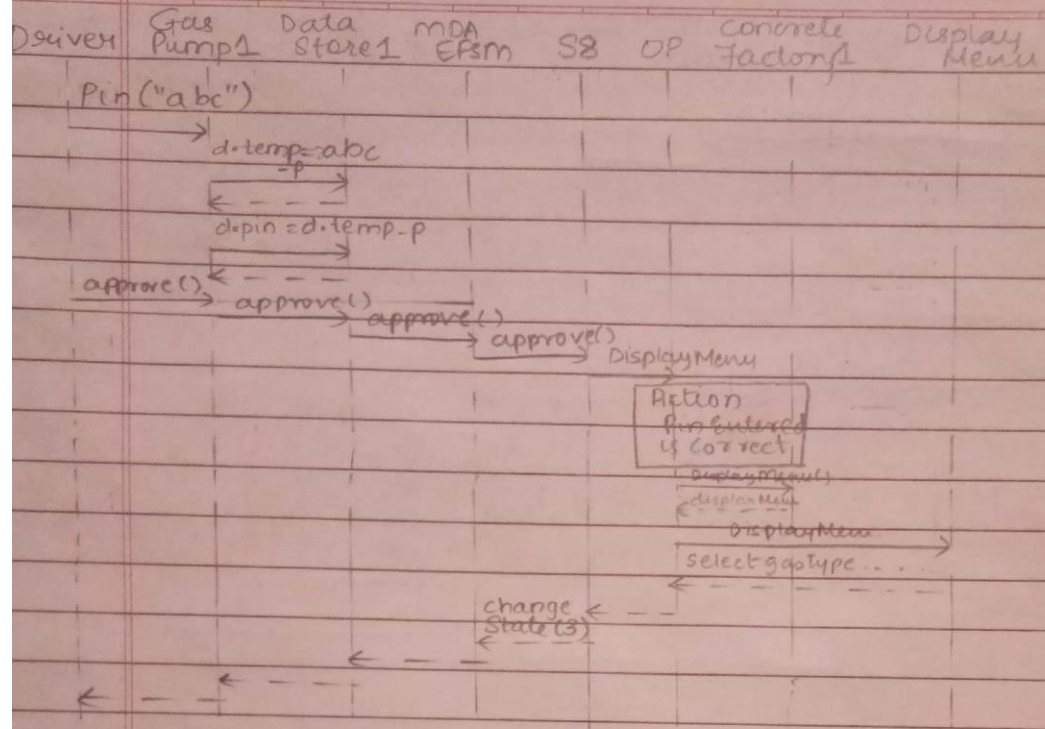 Driver Gas Pump1 Data Store1 MDA EFSM S8 OP Concrete Factory1 Display Menu
Pin("abc")
d.temp=abc
-p
d.pin = d.temp-p
approve() approve() approve() approve()
DisplayMenu
Action
Pin Entered
is correct
DisplayMenu()
displayMenu
DisplayMenu
select gas type ....
change
State(3)